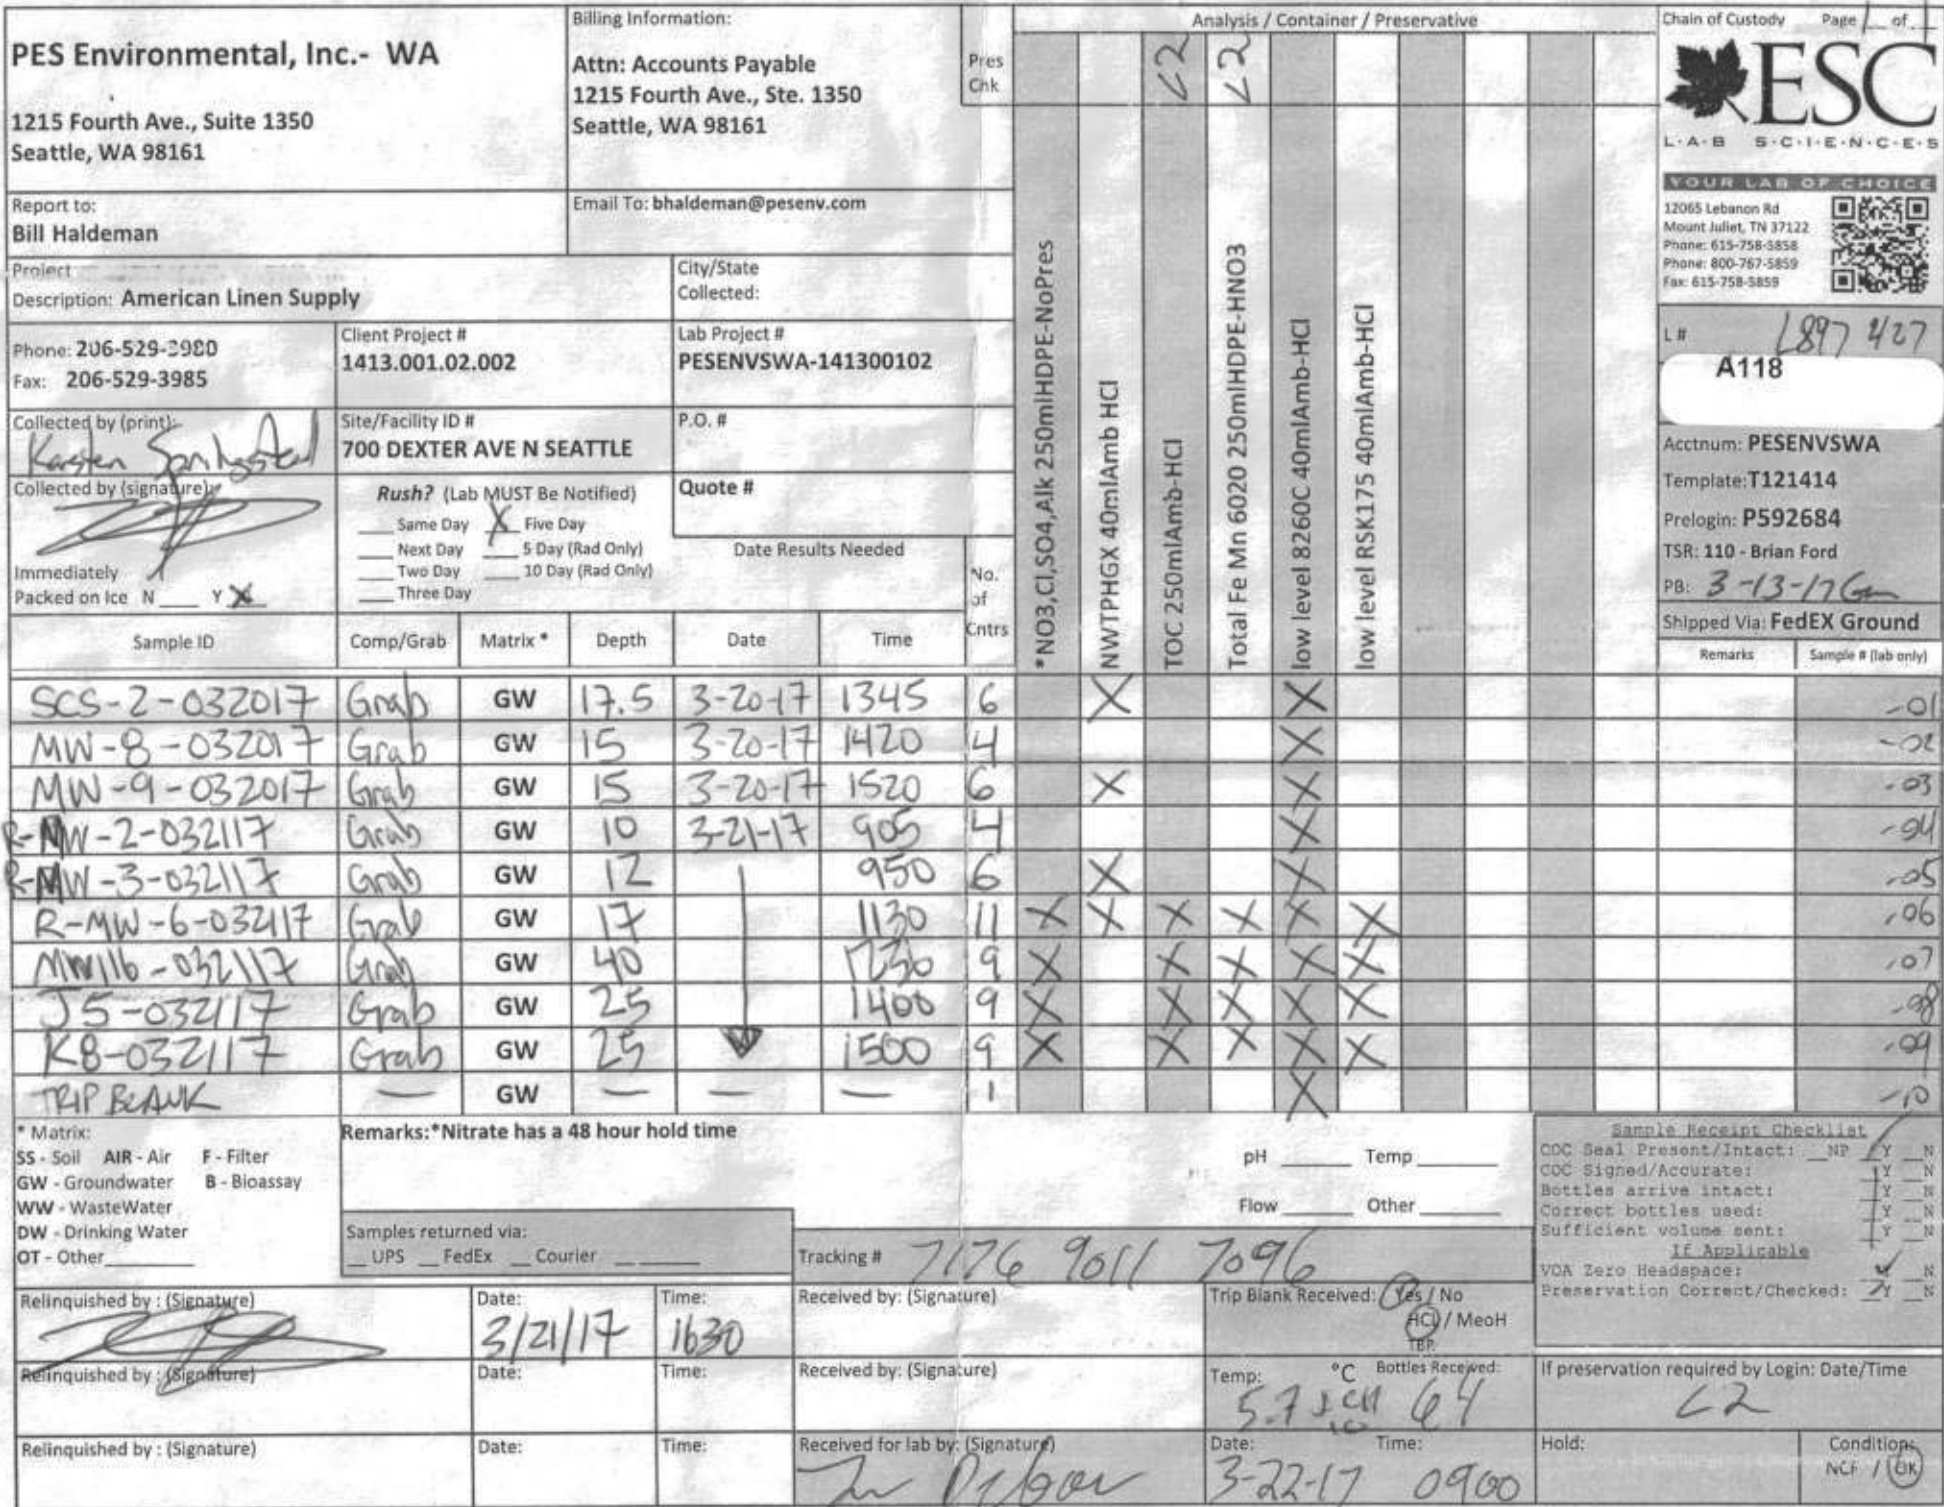 PES Environmental, Inc.- WA
1215 Fourth Ave., Suite 1350
Seattle, WA 98161
Billing Information:
Attn: Accounts Payable
1215 Fourth Ave., Ste. 1350
Seattle, WA 98161
Pres
Chk
Analysis / Container / Preservative
<2 <2
Chain of Custody Page 1 of 1
ESC
L·A·B S·C·I·E·N·C·E·S
YOUR LAB OF CHOICE
12065 Lebanon Rd
Mount Juliet, TN 37122
Phone: 615-758-5858
Phone: 800-767-5859
Fax: 615-758-5859
Report to:
Bill Haldeman
Email To: bhaldeman@pesenv.com
Project
Description: American Linen Supply
City/State
Collected:
Phone: 206-529-3980
Fax: 206-529-3985
Client Project #
1413.001.02.002
Lab Project #
PESENVSWA-141300102
L# L897427
A118
Acctnum: PESENVSWA
Template:T121414
Prelogin: P592684
TSR: 110 - Brian Ford
PB: 3-13-17
Shipped Via: FedEX Ground
Collected by (print):
Karsten Springstead
Site/Facility ID #
700 DEXTER AVE N SEATTLE
P.O. #
Collected by (signature):
Immediately
Packed on Ice N ___ Y X
Rush? (Lab MUST Be Notified)
___ Same Day X Five Day
___ Next Day ___ 5 Day (Rad Only)
___ Two Day ___ 10 Day (Rad Only)
___ Three Day
Quote #
Date Results Needed
No.
of
Cntrs
*NO3,Cl,SO4,Alk 250mlHDPE-NoPres
NWTPHGX 40mlAmb HCl
TOC 250mlAmb-HCl
Total Fe Mn 6020 250mlHDPE-HNO3
low level 8260C 40mlAmb-HCl
low level RSK175 40mlAmb-HCl
Sample ID Comp/Grab Matrix * Depth Date Time Remarks Sample # (lab only)
SCS-2-032017 Grab GW 17.5 3-20-17 1345 6 X X -01
MW-8-032017 Grab GW 15 3-20-17 1420 4 X -02
MW-9-032017 Grab GW 15 3-20-17 1520 6 X X -03
R-MW-2-032117 Grab GW 10 3-21-17 905 4 X -04
R-MW-3-032117 Grab GW 12 950 6 X X -05
R-MW-6-032117 Grab GW 17 1130 11 X X X X X X -06
MW116-032117 Grab GW 40 1230 9 X X X X X -07
J5-032117 Grab GW 25 1400 9 X X X X X -08
K8-032117 Grab GW 25 1500 9 X X X X X -09
TRIP BLANK — GW — — — 1 X -10
* Matrix:
SS - Soil AIR - Air F - Filter
GW - Groundwater B - Bioassay
WW - WasteWater
DW - Drinking Water
OT - Other
Remarks:*Nitrate has a 48 hour hold time
pH ___ Temp ___
Flow ___ Other ___
Samples returned via:
__ UPS __ FedEx __ Courier
Tracking # 7176 9011 7096
Sample Receipt Checklist
COC Seal Present/Intact: __NP Y __N
COC Signed/Accurate: Y __N
Bottles arrive intact: Y __N
Correct bottles used: Y __N
Sufficient volume sent: Y __N
If Applicable
VOA Zero Headspace: Y __N
Preservation Correct/Checked: Y __N
Relinquished by : (Signature)
Date: 3/21/17
Time: 1630
Received by: (Signature)
Trip Blank Received: Yes / No
HCl / MeoH
TBR
Relinquished by : (Signature)
Date:
Time:
Received by: (Signature)
Temp: 5.7 °C
Bottles Received: 64
If preservation required by Login: Date/Time
<2
Relinquished by : (Signature)
Date:
Time:
Received for lab by: (Signature)
Date: 3-22-17
Time: 0900
Hold:
Condition:
NCF / OK